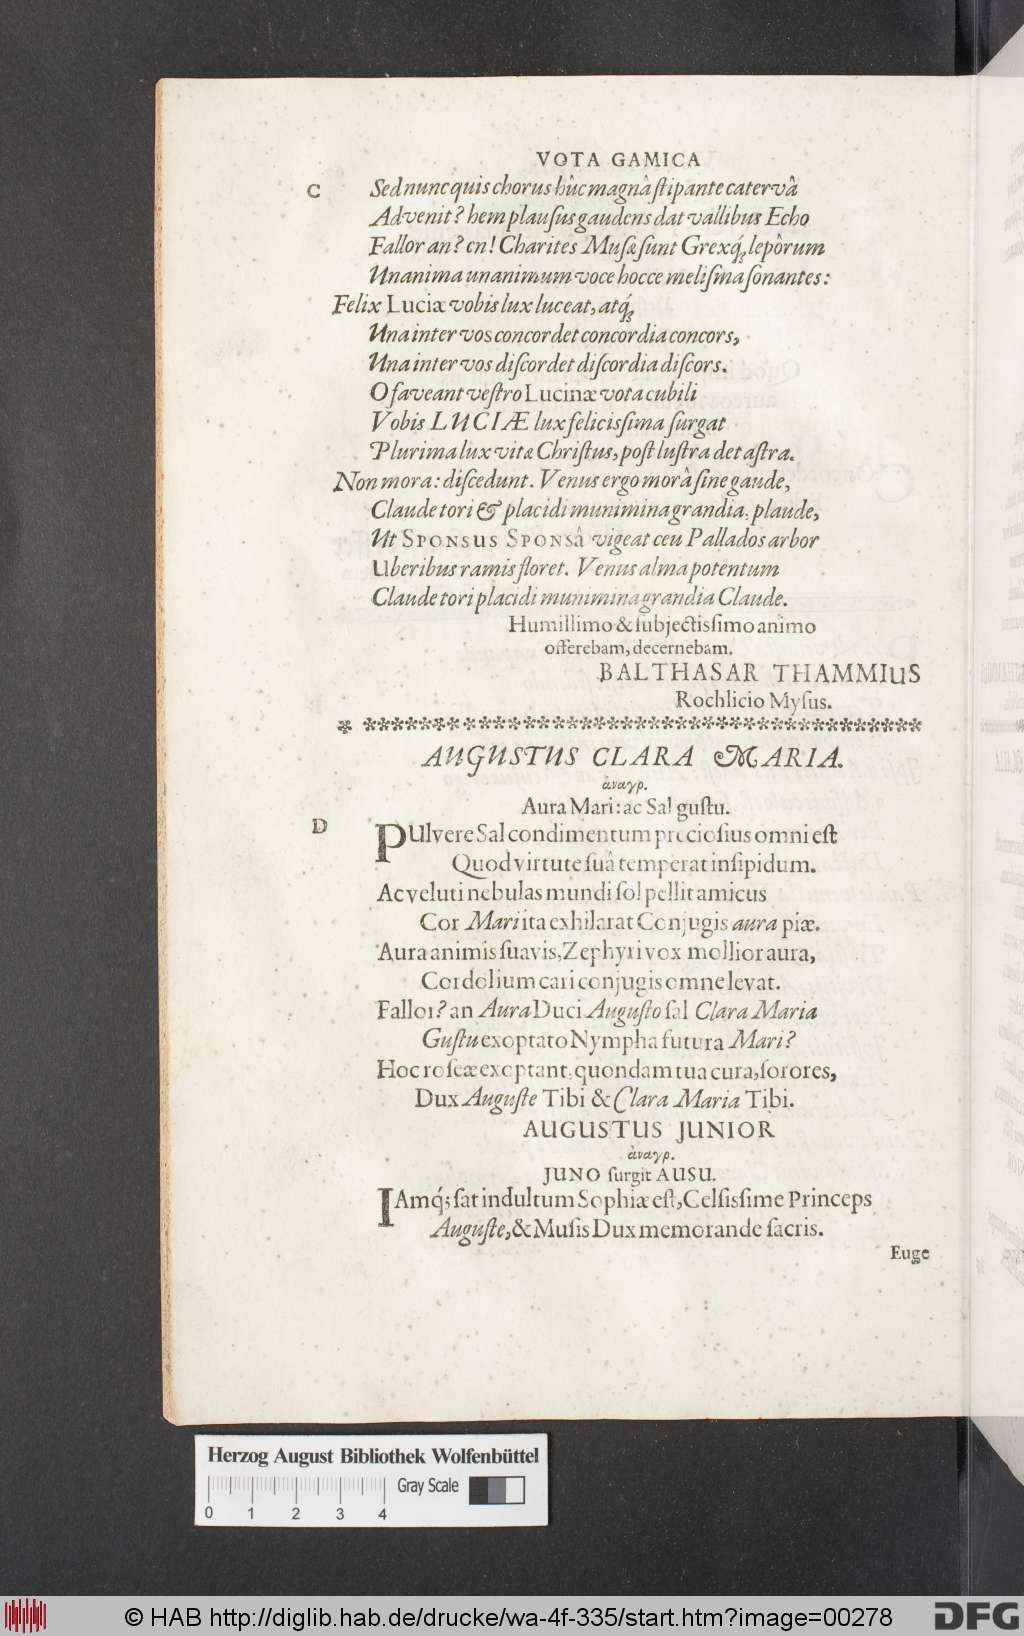 VOTA GAMICA
C Sed nunc quis chorus hûc magnâ ſtipante catervâ
Advenit? hem plauſus gaudens dat vallibus Echo
Fallor an? en! Charites Muſæ ſunt Grexq́; lepôrum
Unanima unanimum voce hocce meliſma ſonantes:
Felix Luciæ vobis lux luceat, atq́;
Una inter vos concordet concordia concors,
Una inter vos diſcordet diſcordia diſcors.
O faveant veſtro Lucinæ vota cubili
Vobis LUCIÆ lux feliciſſima ſurgat
Plurima lux vitæ Chriſtus, poſt luſtra det aſtra.
Non mora: diſcedunt. Venus ergo morâ ſine gaude,
Claude tori & placidi munimina grandia, plaude,
Ut SPONSUS SPONSâ vigeat ceu Pallados arbor
Uberibus ramis floret. Venus alma potentum
Claude tori placidi munimina grandia Claude.
Humillimo & ſubjectiſſimo animo
offerebam, decernebam.
BALTHASAR THAMMIUS
Rochlicio Myſus.
AUGUSTUS CLARA MARIA.
ἀναγρ.
Aura Mari: ac Sal guſtu.
D PUlvere Sal condimentum precioſius omni eſt
Quod virtute ſuâ temperat inſipidum.
Ac veluti nebulas mundi ſol pellit amicus
Cor Mari ita exhilarat Conjugis aura piæ.
Aura animis ſuavis, Zephyri vox mollior aura,
Cordolium cari conjugis omne levat.
Fallor? an Aura Duci Auguſto ſal Clara Maria
Guſtu exoptato Nympha futura Mari?
Hoc roſeæ exoptant, quondam tua cura, ſorores,
Dux Auguſte Tibi & Clara Maria Tibi.
AUGUSTUS JUNIOR
ἀναγρ.
JUNO ſurgit AUSU.
IAmq́; ſat indultum Sophiæ eſt, Celſiſſime Princeps
Auguſte, & Muſis Dux memorande ſacris.
Euge
Herzog August Bibliothek Wolfenbüttel
Gray Scale
0 1 2 3 4
© HAB http://diglib.hab.de/drucke/wa-4f-335/start.htm?image=00278
DFG